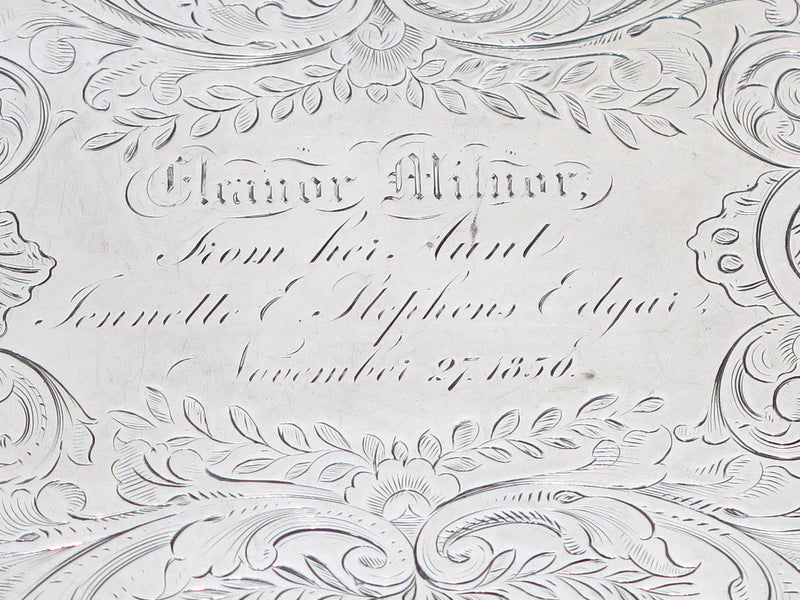 Eleanor Milnor,
From her Aunt
Jennette E. Stephens Edgar,
November 27. 1850.